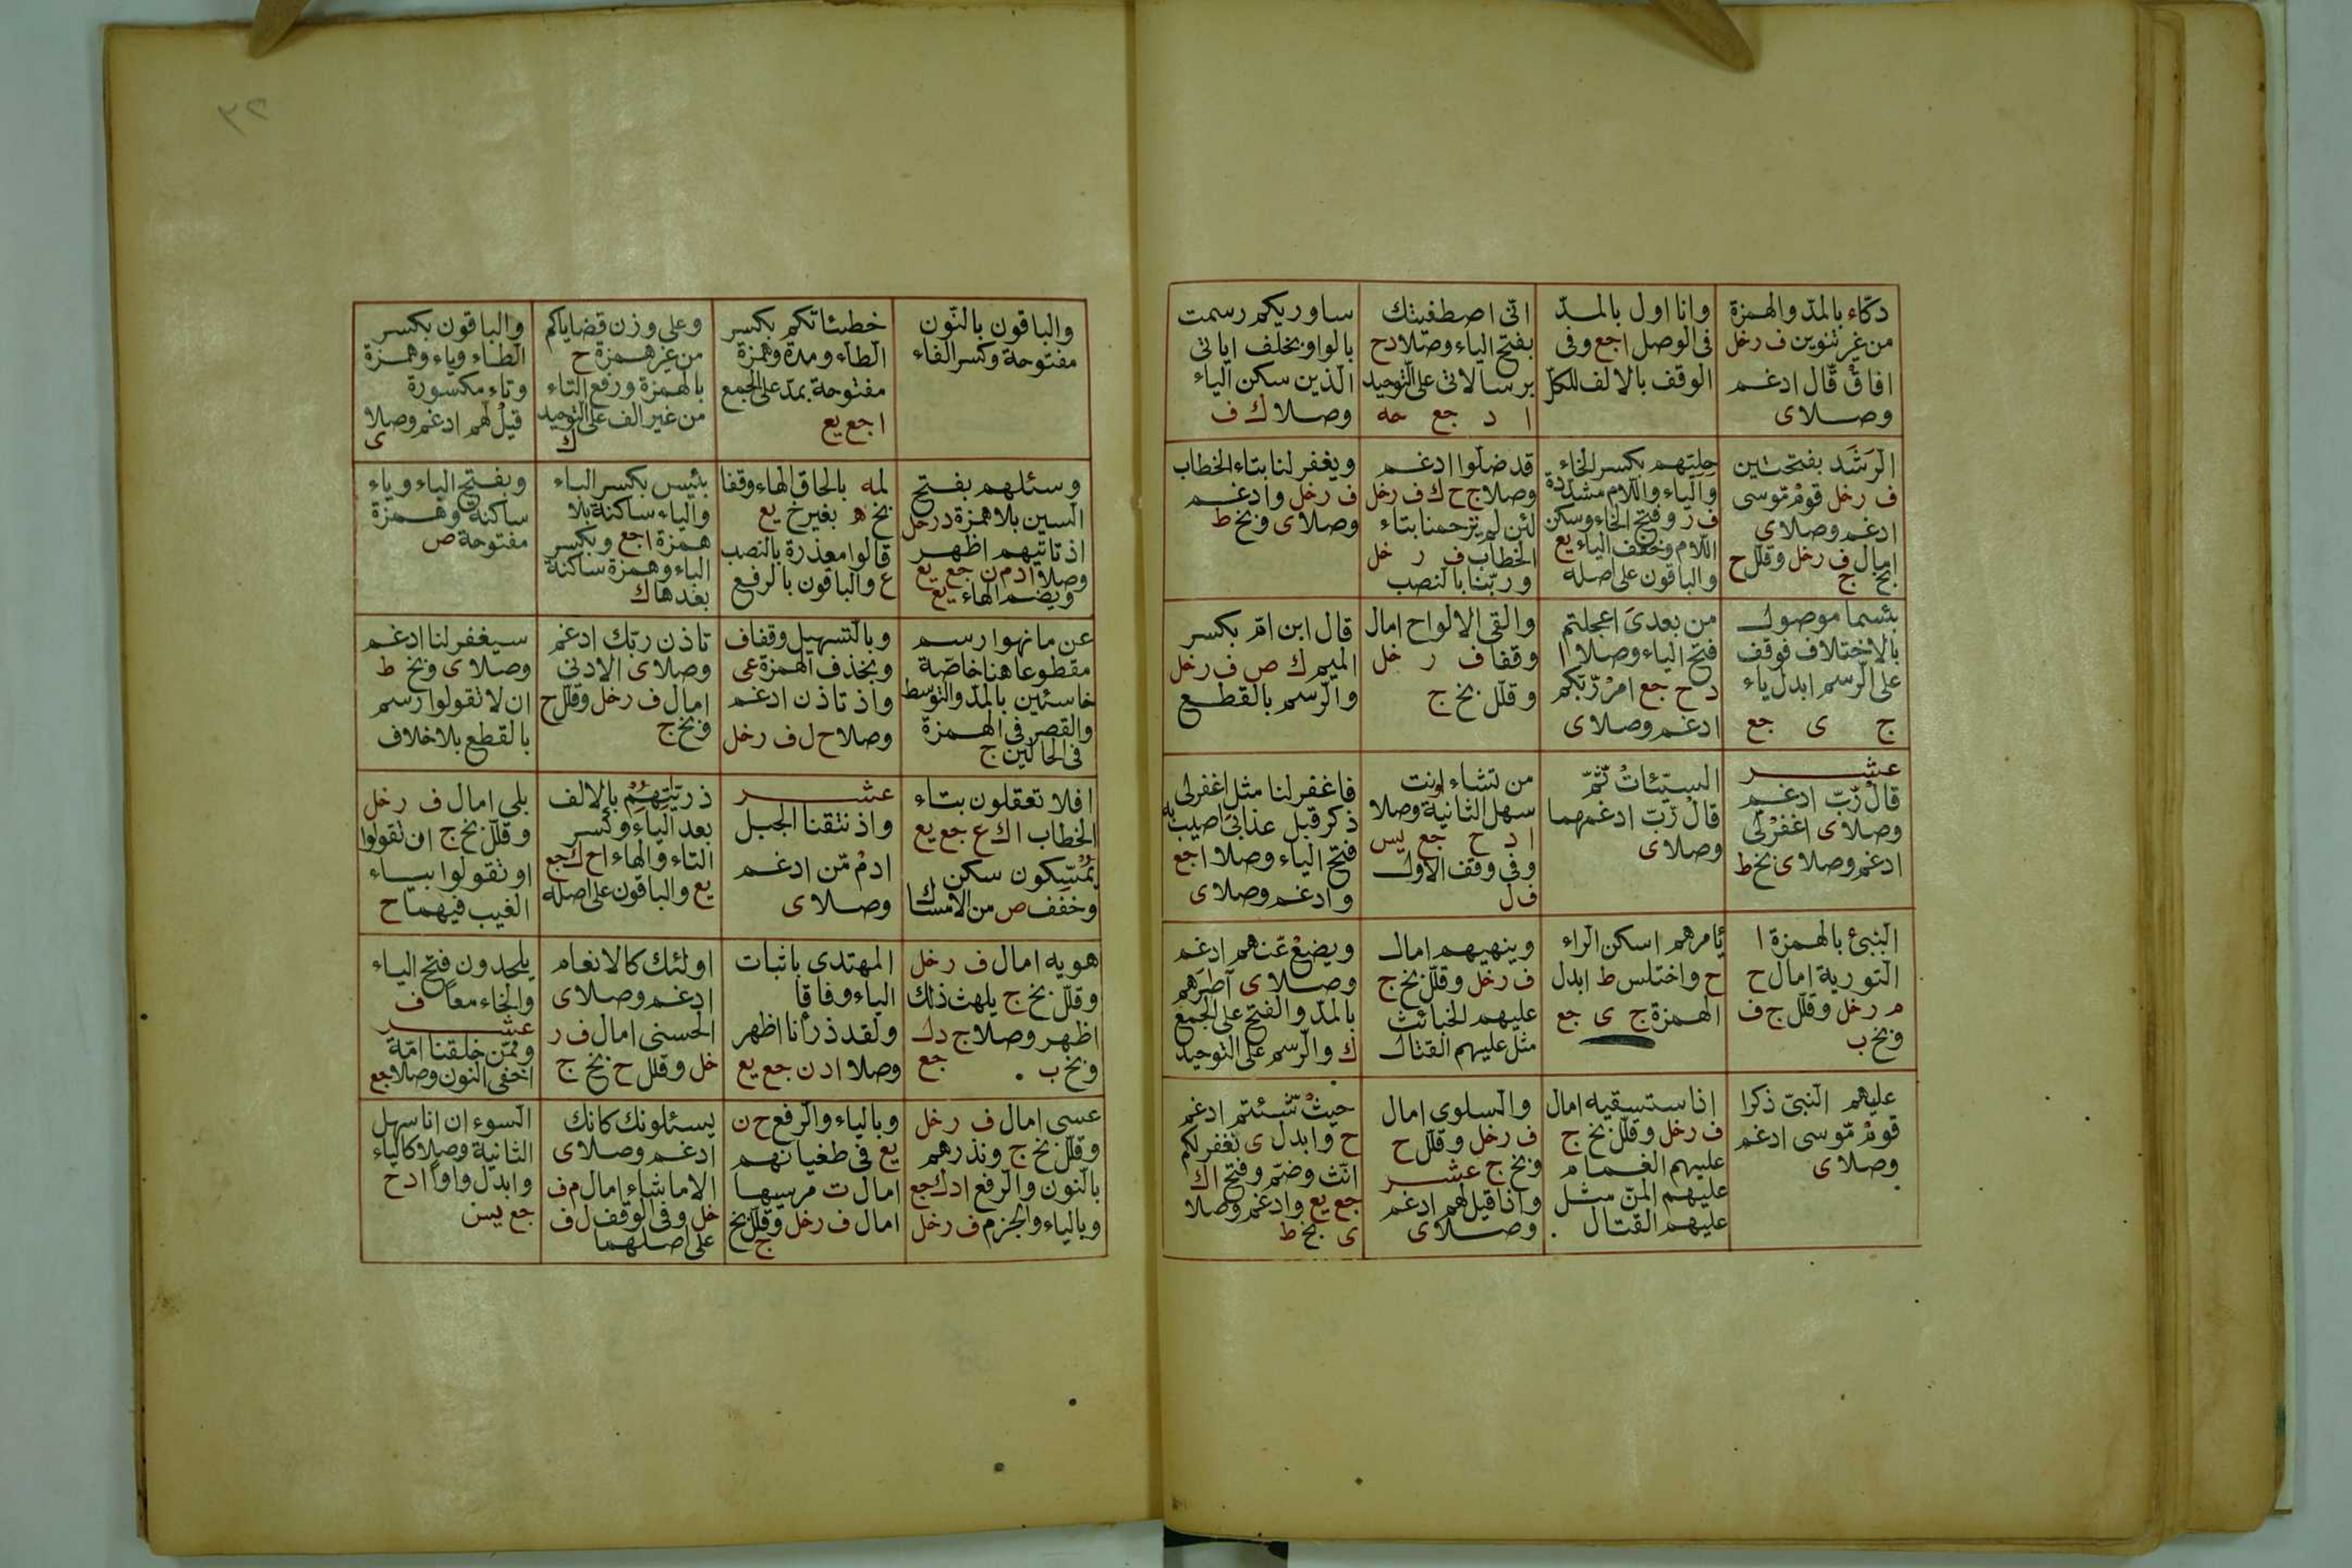 دكّاء بالمدّ والهمزة
من غير تنوين ف رخل
افاق قّال ادغم
وصلا ى
وانا اول بالمدّ
فى الوصل اجع وفى
الوقف بالالف للكلّ
انّى اصطفيتك
بفتح الياء وصلا دح
برسالاتى على التّوحيد
ا د جع حه
ساوريكم رسمت
بالواو بخلف اياتى
الّذين سكن الياء
وصلا ك ف
الرَشَد بفتحتين
ف رخل قومْ مّوسى
ادغم وصلا ى
امال ف رخل وقلل ح
بخ ج
حِليّهم بكسر الحاء
والياء واللام مشدّدة
ف ر وفتح الحاء وسكن
اللام وخفف الياء يع
والباقون على اصله
قد ضلّوا ادغم
وصلا ج ح ك ف رخل
لئن لم ترحمنا بتاء
الخطاب ف ر خل
وربّنا بالنصب
ويغفر لنا بتاء الخطاب
ف رخل وادغم
وصلا ى وبخ ط
بئسما موصول
بالاختلاف فوقف
على الرّسم ابدل ياء
ج ى جع
من بعدىَ اعجلتم
فتح الياء وصلا ا
د ح جع امرْ رّبّكم
ادغم وصلا ى
والقى الالواح امال
وقفا ف ر خل
وقلّل بخ ج
قال ابن امّ بكسر
الميم ك ص ف رخل
والرّسم بالقطع
عشر
قالْ رّبّ ادغم
وصلا ى اغفرْ لّى
ادغم وصلا ى بخ ط
السيّئاتْ ثّمّ
قالْ رّبّ ادغمهما
وصلا ى
من تشاء اونت
سهل الثانية وصلا
ا د ح جع يس
وفى وقف الاول
ف ل
فاغفر لنا مثل اغفر لى
ذكر قبل عذابىَ اصيب به
فتح الياء وصلا اجع
وادغم وصلا ى
النبىء بالهمزة ا
التورية امال ح
م رخل وقلّل ج ف
وبخ ب
يامرهم اسكن الراء
ح واختلس ط ابدل
الهمزة ج ى جع
وينهيهم امال
ف رخل وقلّل بخ ج
عليهم الخبائث
مثل عليهم القتال
ويضعْ عّنهم ادغم
وصلا ى آصارهم
بالمدّ والفتح على الجمع
ك والرّسم على التوحيد
عليهم النبىّ ذكرا
قومْ مّوسى ادغم
وصلا ى
اذا ستسقيه امال
ف رخل وقلّل بخ ج
عليهم الغمام
عليهم المنّ مثل
عليهم القتال
والسلوى امال
ف رخل وقلّل ح
وبخ ج عشر
واذا قيل لهم ادغم
وصلا ى
حيثْ شّئتم ادغم
ح وابدل ى تغفر لكم
انّث وضمّ وفتح اك
جع يع وادغم وصلا
ى بخ ط
٣٢
والباقون بالنّون
مفتوحة وكسر الفاء
خطيئاتكم بكسر
الطّاء ومدة وهمزة
مفتوحة بمدّ على الجمع
اجع يع
وعلى وزن قضاياكم
من غير همزة ح
بالهمزة ورفع التاء
من غير الف على التّوحيد
ك
والباقون بكسر
الطاء وياء وهمزة
وتاء مكسورة
قيل لّهم ادغم وصلا
ى
وسئلهم بفتح
السين بلا همزة درخل
اذ تاتيهم اظهر
وصلا ا د م ن جع يع
وبضم الهاء يع
لمه بالحاق الهاء وقفا
بخ ه بغير خ يع
قالوا معذرة بالنصب
ع والباقون بالرفع
بئيس بكسر الباء
والياء ساكنة بلا
همزة اجع وبكسر
الباء وهمزة ساكنة
بعدها ك
وبفتح الباء وياء
ساكنة وهمزة
مفتوحة ص
عن ما نهوا رسم
مقطوعا هنا خاصّة
خاسئين بالمدّ والتوسط
والقصر فى الهمزة
فى الحالين ج
وبالتسهيل وقفا ف
وبحذف الهمزة عى
واذ تاذن ادغم
وصلا ح ل ف رخل
تاذن ربّك ادغم
وصلا ى الادنى
امال ف رخل وقلّل ح
وبخ ج
سيغفر لنا ادغم
وصلا ى وبخ ط
ان لا تقولوا رسم
بالقطع بلا خلاف
افلا تعقلون بتاء
الخطاب اك ع جع يع
يُمْسّكون سكن
وخفف ص من الامساك
عشر
واذ نتقنا الجبل
ادمْ مّن ادغم
وصلا ى
ذريّتهم بالالف
بعد الياء وكسر
التاء والهاء اح ك جع
يع والباقون على اصله
بلى امال ف رخل
وقلّل بخ ج ان تقولوا
او تقولوا بياء
الغيب فيهما ح
هويه امال ف رخل
وقلّل بخ ج يلهث ذلك
اظهر وصلا ج د ك
وبخ ب جع
المهتدى باثبات
الياء وفاقا
ولقد ذرأنا اظهر
وصلا ا د ن جع يع
اولئك كالانعام
ادغم وصلا ى
الحسنى امال ف ر
خل وقلل ح بخ ج
يلحدون فتح الياء
والحاء معاً ف
عشر
وممّن خلقنا امّة
اخفى النون وصلا جع
عسى امال ف رخل
وقلّل بخ ج ونذرهم
بالنون والرّفع ادك جع
وبالياء والجزم ف رخل
وبالياء والرّفع ح ن
يع فى طغيانهم
امال ت مرسيها
امال ف رخل وقلّل بخ
ج
يسئلونك كانك
ادغم وصلا ى
الا ما شاء امال م ف
خل وفى الوقف ل ف
على اصلهما
السوء ان انا سهل
الثانية وصلا كالياء
وابدل واوا ا د ح
جع يس